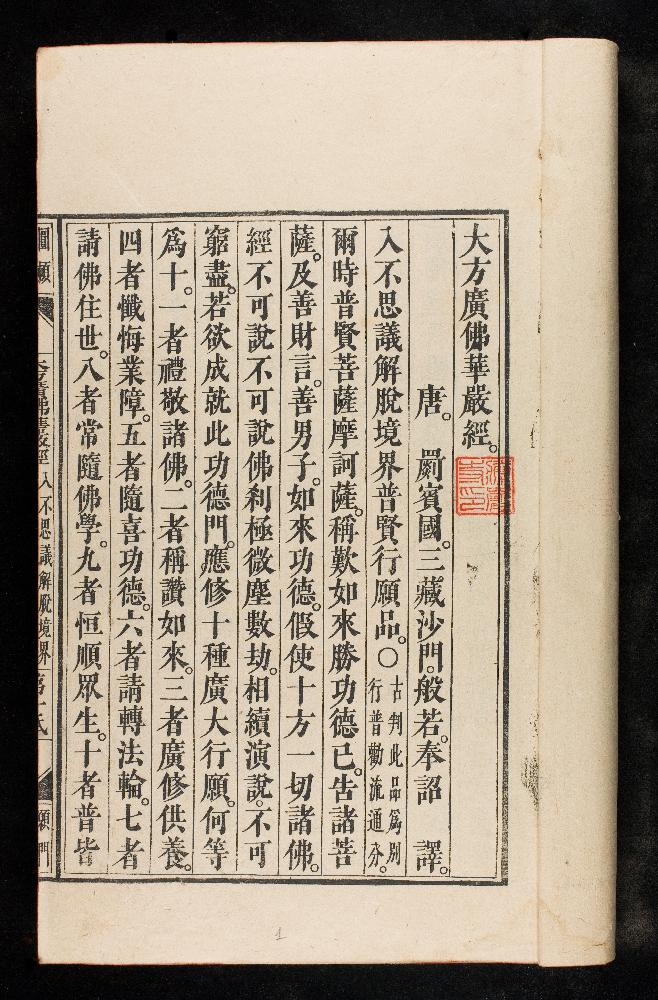 大方廣佛華嚴經。
唐。 罽賓國。三藏沙門。般若。奉詔 譯。
入不思議解脫境界普賢行願品。〇古判此品爲別
行普勸流通分。
爾時普賢菩薩摩訶薩。稱歎如來勝功德已。告諸菩
薩。及善財言。善男子。如來功德。假使十方一切諸佛。
經不可說不可說佛刹極微塵數劫。相續演說。不可
窮盡。若欲成就此功德門。應修十種廣大行願。何等
爲十。一者禮敬諸佛。二者稱讚如來。三者廣修供養。
四者懺悔業障。五者隨喜功德。六者請轉法輪。七者
請佛住世。八者常隨佛學。九者恒順眾生。十者普皆
大方廣佛華嚴經入不思議解脫境界